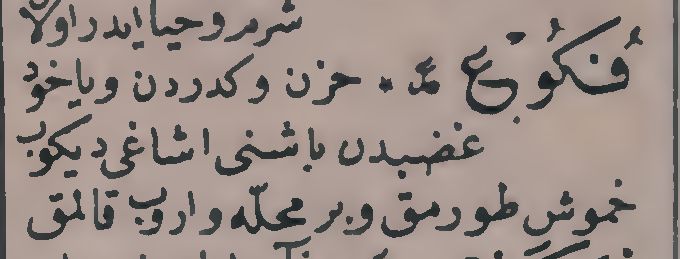 شرم و حیا ایدر اولا
فُكُوع عۭ٭ حزن و كدردن ویاخود
غضبدن باشنی اشاغی دیكوب
خموش طورمق و بر محلّه واروب قالمق